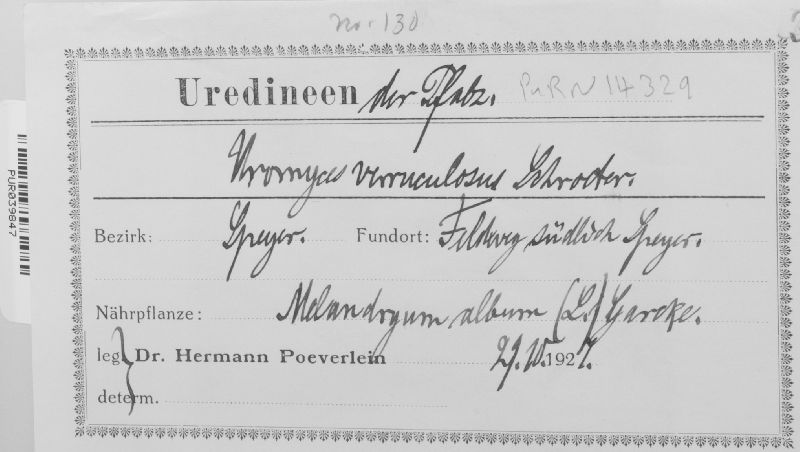 No. 130
Uredineen der Pfalz. PURN 14329
Uromyces verruculosus Schroeter.
Bezirk: Speyer. Fundort: Feldweg südlich Speyer.
Nährpflanze: Melandryum album (L.) Garcke.
leg. Dr. Hermann Poeverlein 1927.
determ.
PUR039847